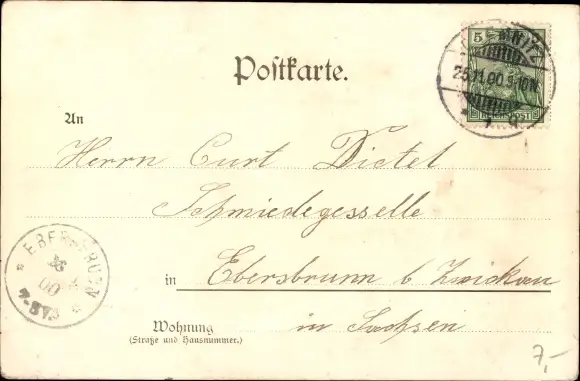 5
REICHSPOST
25.11.00.9-10N.
Postkarte.
An
Herrn Curt Dietel
Schmiedegeselle
EBERSBRUNN
00
7-8V.
in Ebersbrunn b Zwickau
Wohnung
(Straße und Hausnummer.)
in Sachsen
7,-